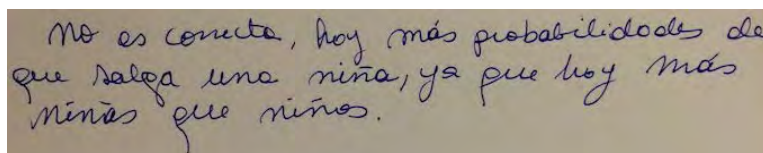 No es correcta, hay más probabilidades de
que salga una niña, ya que hay más
niñas que niños.